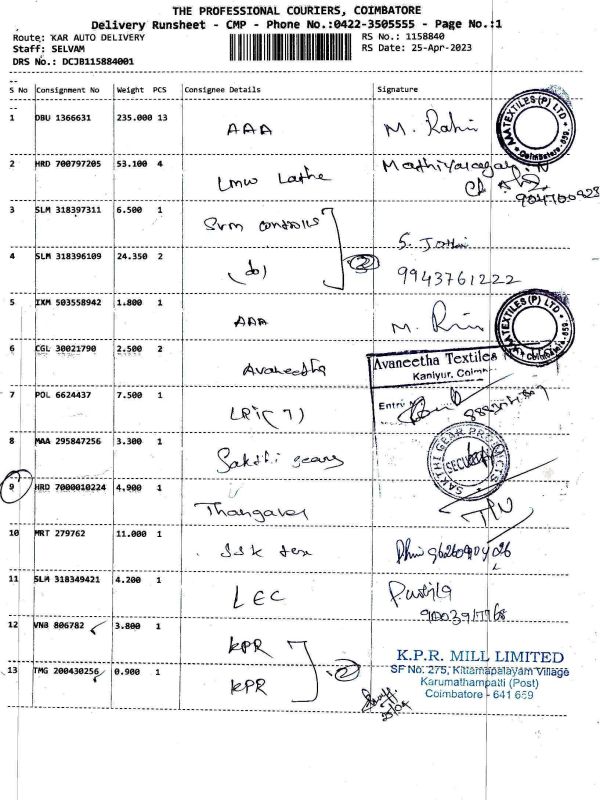 THE PROFESSIONAL COURIERS, COIMBATORE
Delivery Runsheet - CMP - Phone No.:0422-3505555 - Page No.:1
Route: KAR AUTO DELIVERY RS No.: 1158840
Staff: SELVAM RS Date: 25-Apr-2023
DRS No.: DCJB115884001
S No Consignment No Weight PCS Consignee Details Signature
1 DBU 1366631 235.000 13 AAA M. Rahi
AATEXTILES (P) LTD Coimbatore 659
2 HRD 700797205 53.100 4 LMW Lathe
3 SLM 318397311 6.500 1 Svm controls
4 SLM 318396109 24.350 2 (do) 2 S. Jothi
9943761222
5 IXM 503558942 1.800 1 AAA M.
TEXTILES (P) LTD Coimbatore 659
6 CGL 30021790 2.500 2 Avaneetha
Avaneetha Textiles
Kaniyur, Coim
Entry
7 POL 6624437 7.500 1 LRI (7)
8 MAA 295847256 3.300 1 Sakthi gears
SAKTHI GEAR PRODUCTS SECURITY
9 HRD 7000010224 4.900 1 Thangavel
10 MRT 279762 11.000 1 SSK tex
11 SLM 318349421 4.200 1 LEC
12 VNB 806782 3.800 1 KPR
13 TMG 200430256 0.900 1 KPR 2
K.P.R. MILL LIMITED
SF No: 275, Kittampalayam Village
Karumathampatti (Post)
Coimbatore - 641 659
25/04